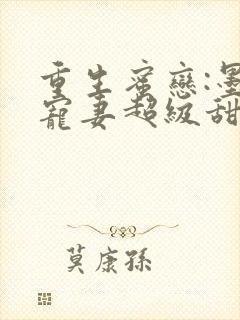 重生蜜戀:墨
寵妻超級甜
莫康孫